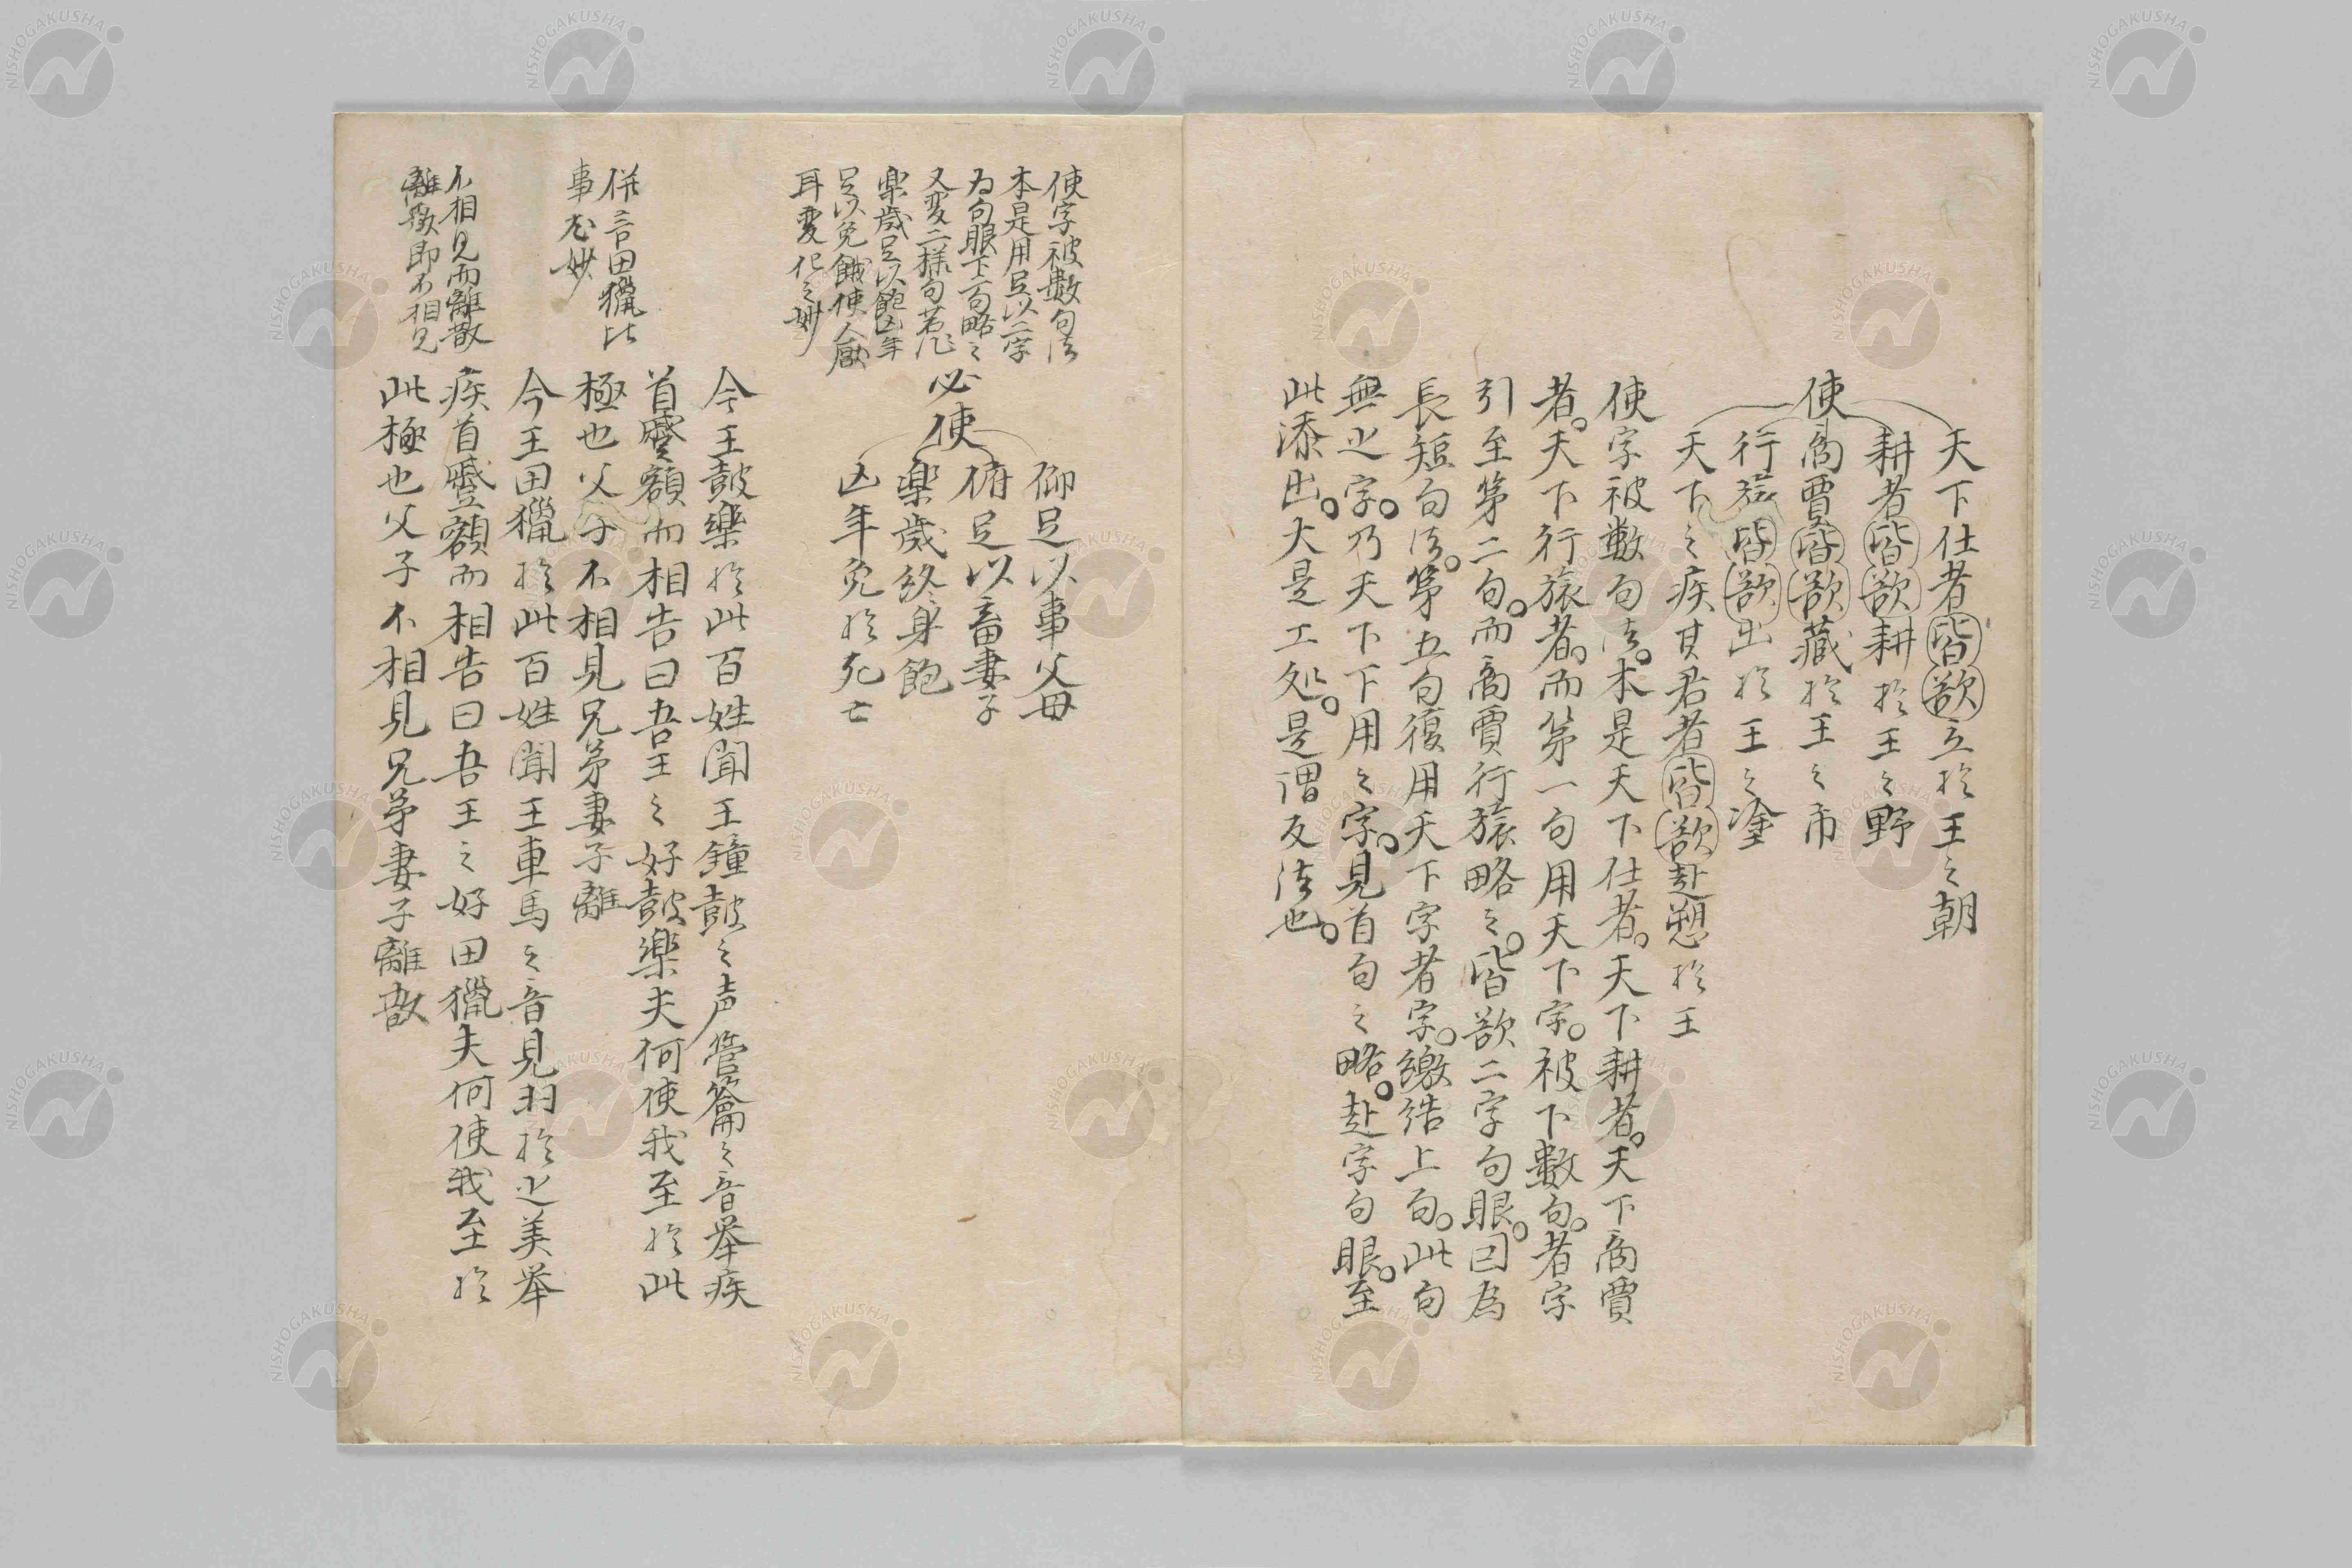 天下仕者皆欲立於王之朝
耕者皆欲耕於王之野
使
商賈皆欲藏於王之市
行旅皆欲出於王之塗
天下之疾其君者皆欲赴愬於王
使字被數句法。本是天下仕者。天下耕者。天下商賈
者。天下行旅者。而第一句用天下字。被下數句。者字
引至第二句。而商賈行旅略之。皆欲二字句眼。因為
長短句法。第五句復用天下字者字。繳結上句。此句
無止字。乃天下下用之字。見首句之略。赴字句眼。至
此添出。大是工処。是謂反法也。
使字被數句法
本是用足以二字
為句眼下二句略之
又変二様句若作
楽歳足以飽凶年
足以免餓使人厭
耳変化之妙
必使
仰足以事父母
俯足以畜妻子
楽歳終身飽
凶年免於死亡
今王鼓樂於此百姓聞王鐘鼓之声管籥之音挙疾
首蹙額而相告曰吾王之好鼓楽夫何使我至於此
極也父子不相見兄弟妻子離
併言田猟比
事尤妙
今王田猟於此百姓聞王車馬之音見羽旄之美挙
疾首蹙額而相告曰吾王之好田猟夫何使我至於
此極也父子不相見兄弟妻子離散
不相見而離散
離散即不相見
NISHOGAKUSHA